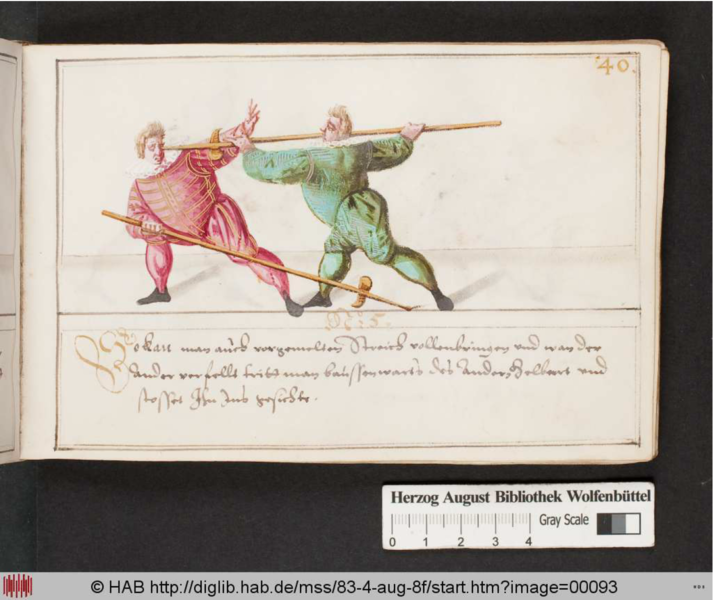 40.
No: 5.
So kan man auch vorgemelten Streich vollenbringen und wan der
Ander verfellt tritt man baussenwarts des Anders Helbart und
stosset Ihn Ins gesichte.
Herzog August Bibliothek Wolfenbüttel
Gray Scale
0 1 2 3 4
© HAB http://diglib.hab.de/mss/83-4-aug-8f/start.htm?image=00093